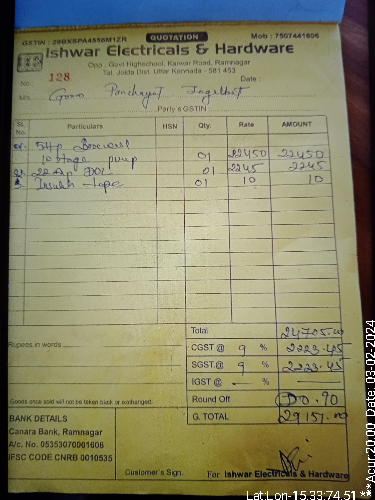 GSTIN : 29BXSPA4556M1ZR QUOTATION Mob : 7507441606
Ishwar Electricals & Hardware
Opp. Govt Highschool, Karwar Road, Ramnagar
Tal. Joida Dist. Uttar Kannada - 581 453
No. 128 Date :
M/s Panchayat
Party's GSTIN
Sl. No. Particulars HSN Qty. Rate AMOUNT
5Hp
10 stage pump 01 22450 22450
01 2245 2245
tape 01 10 10
Total 24705.00
Rupees in words CGST@ 9 % 2223.45
SGST@ 9 % 2223.45
IGST@ — %
Round Off 0.90
Goods once sold will not be taken back or exchanged.
G. TOTAL 29151.00
BANK DETAILS
Canara Bank, Ramnagar
A/c. No. 05353070001606
IFSC CODE CNRB 0010535
Customer's Sign. For Ishwar Electricals & Hardware
Lat Lon-15.33:74.51 ***Acur 20.00 Date:03-02-2024